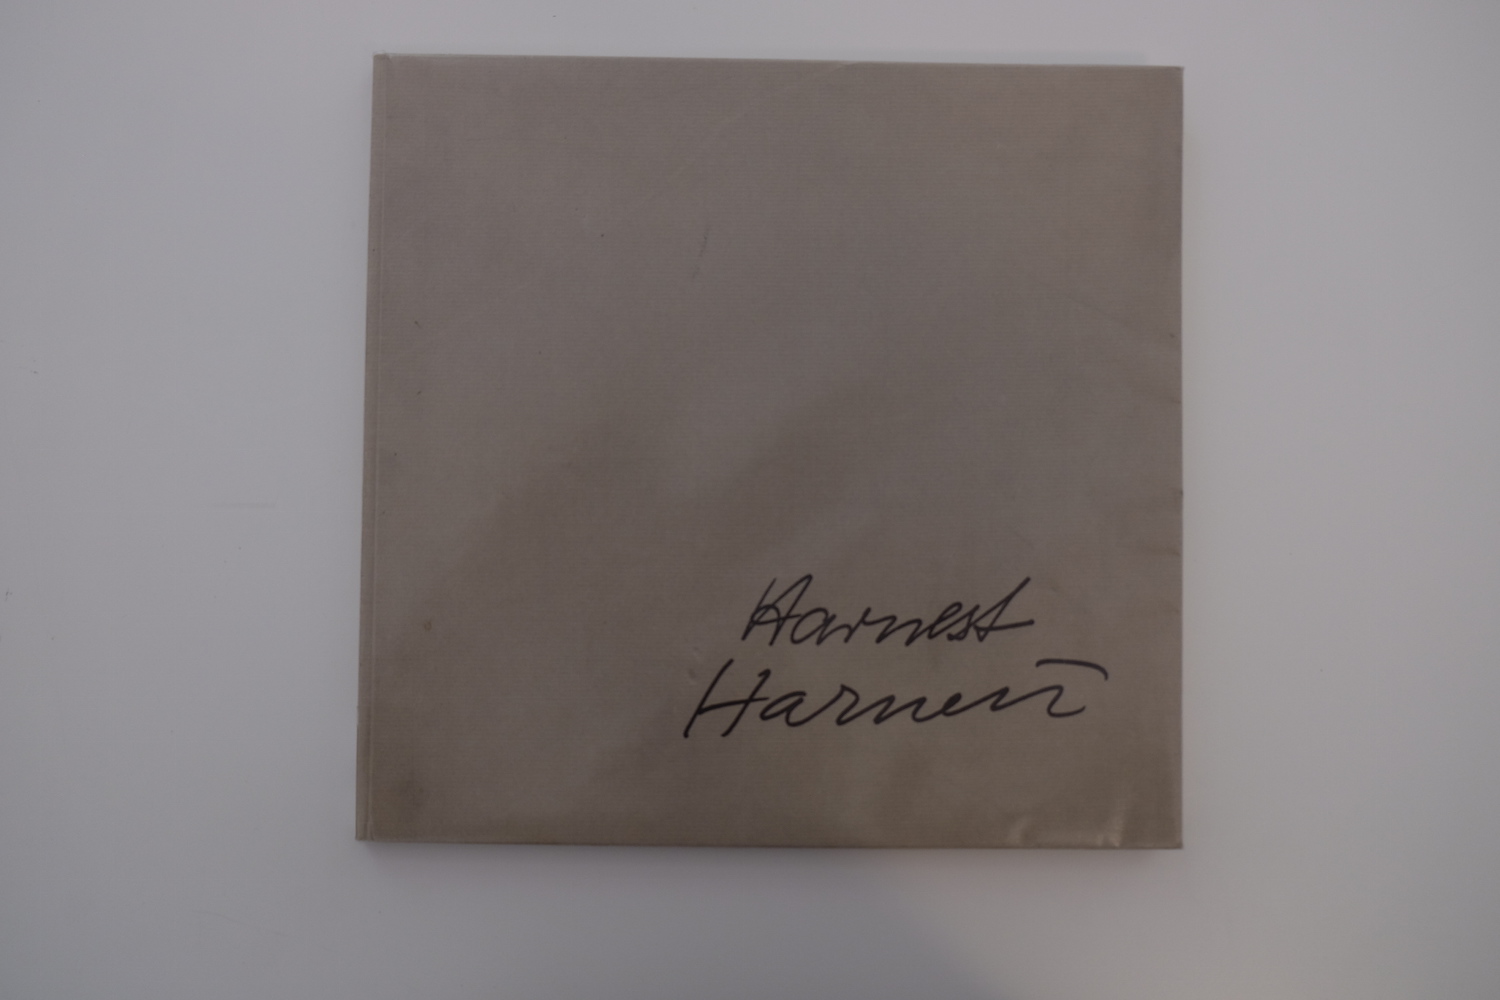 Harnest
Harnest